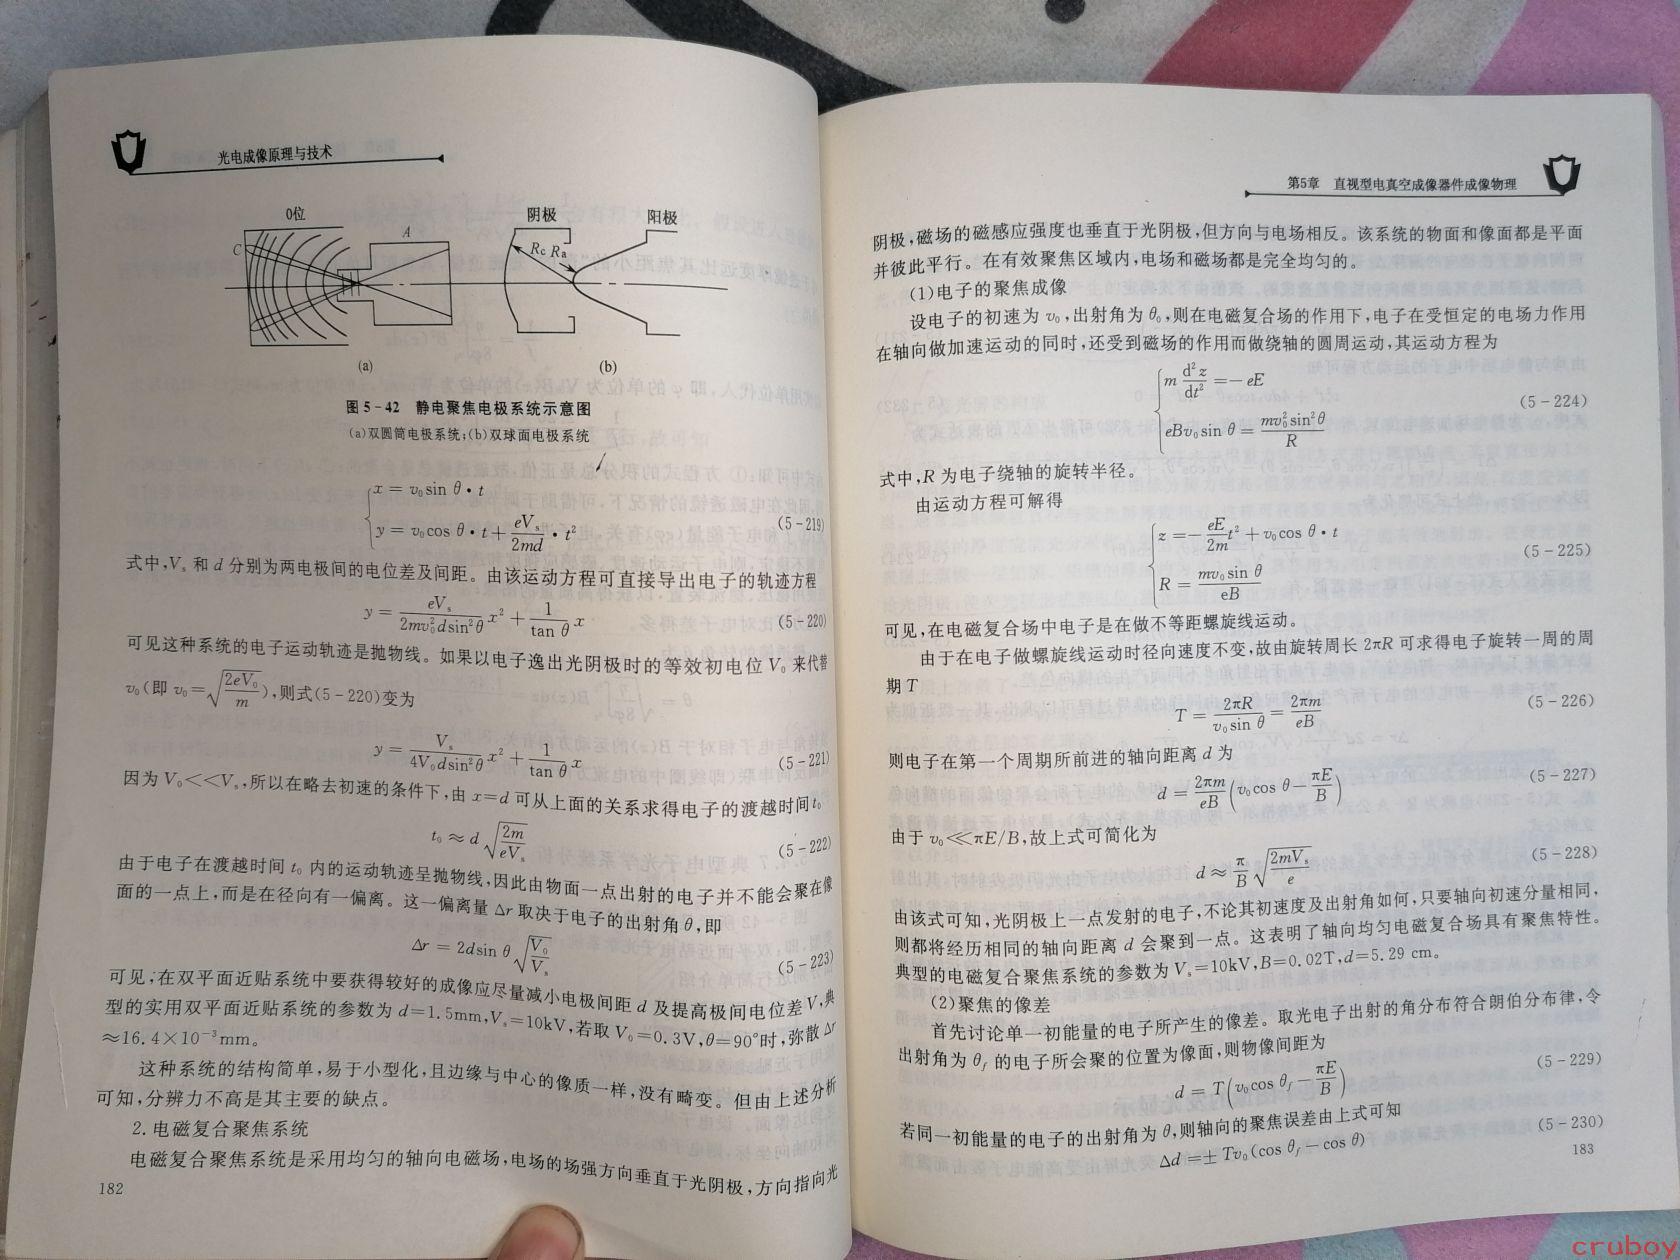 光电成像原理与技术
0位
C
A
(a)
阴极
阳极
Rc Ra
(b)
图 5-42 静电聚焦电极系统示意图
(a)双圆筒电极系统;(b)双球面电极系统
x = v₀sin θ·t
y = v₀cos θ·t + eVₛ/2md · t²
(5-219)
式中,Vₛ 和 d 分别为两电极间的电位差及间距。由该运动方程可直接导出电子的轨迹方程
y = eVₛ/2mv₀²dsin²θ x² + 1/tan θ x
(5-220)
可见这种系统的电子运动轨迹是抛物线。如果以电子逸出光阴极时的等效初电位 V₀ 来代替
v₀(即 v₀=√(2eV₀/m)),则式(5-220)变为
y = Vₛ/4V₀dsin²θ x² + 1/tan θ x
(5-221)
因为 V₀<<Vₛ,所以在略去初速的条件下,由 x=d 可从上面的关系求得电子的渡越时间t₀
t₀ ≈ d √(2m/eVₛ)
(5-222)
由于电子在渡越时间 t₀ 内的运动轨迹呈抛物线,因此由物面一点出射的电子并不能会聚在像
面的一点上,而是在径向有一偏离。这一偏离量 Δr 取决于电子的出射角 θ,即
Δr = 2dsin θ √(V₀/Vₛ)
(5-223)
可见,在双平面近贴系统中要获得较好的成像应尽量减小电极间距 d 及提高极间电位差 V,典
型的实用双平面近贴系统的参数为 d=1.5mm,Vₛ=10kV,若取 V₀=0.3V,θ=90°时,弥散 Δr
≈16.4×10⁻³mm。
这种系统的结构简单,易于小型化,且边缘与中心的像质一样,没有畸变。但由上述分析
可知,分辨力不高是其主要的缺点。
2. 电磁复合聚焦系统
电磁复合聚焦系统是采用均匀的轴向电磁场,电场的场强方向垂直于光阴极,方向指向光
182
第5章 直视型电真空成像器件成像物理
阴极,磁场的磁感应强度也垂直于光阴极,但方向与电场相反。该系统的物面和像面都是平面
并彼此平行。在有效聚焦区域内,电场和磁场都是完全均匀的。
(1)电子的聚焦成像
设电子的初速为 v₀,出射角为 θ₀,则在电磁复合场的作用下,电子在受恒定的电场力作用
在轴向做加速运动的同时,还受到磁场的作用而做绕轴的圆周运动,其运动方程为
m d²z/dt² = −eE
eBv₀sin θ = mv₀²sin²θ/R
(5-224)
式中,R 为电子绕轴的旋转半径。
由运动方程可解得
z = −eE/2m t² + v₀cos θ·t
R = mv₀sin θ/eB
(5-225)
可见,在电磁复合场中电子是在做不等距螺旋线运动。
由于在电子做螺旋线运动时径向速度不变,故由旋转周长 2πR 可求得电子旋转一周的周
期 T
T = 2πR/v₀sin θ = 2πm/eB
(5-226)
则电子在第一个周期所前进的轴向距离 d 为
d = 2πm/eB (v₀cos θ − πE/B)
(5-227)
由于 v₀≪πE/B,故上式可简化为
d ≈ π/B √(2mVₛ/e)
(5-228)
由该式可知,光阴极上一点发射的电子,不论其初速度及出射角如何,只要轴向初速分量相同,
则都将经历相同的轴向距离 d 会聚到一点。这表明了轴向均匀电磁复合场具有聚焦特性。
典型的电磁复合聚焦系统的参数为 Vₛ=10kV,B=0.02T,d=5.29 cm。
(2)聚焦的像差
首先讨论单一初能量的电子所产生的像差。取光电子出射的角分布符合朗伯分布律,令
出射角为 θf 的电子所会聚的位置为像面,则物像间距为
d = T(v₀cos θf − πE/B)
(5-229)
若同一初能量的电子的出射角为 θ,则轴向的聚焦误差由上式可知
Δd = ± Tv₀(cos θf − cos θ)
(5-230)
183
cruboy